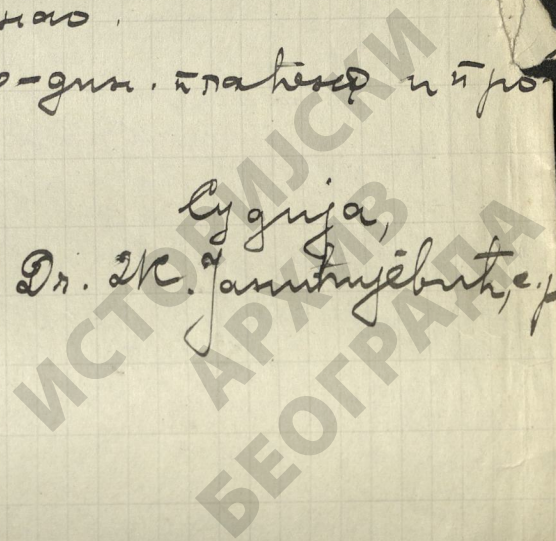 нао.
-дин. плаћена и про-
Судија,
Dr. Ж. Јанићијевић, с. р
ИСТОРИЈСКИ
АРХИВ
БЕОГРАДА